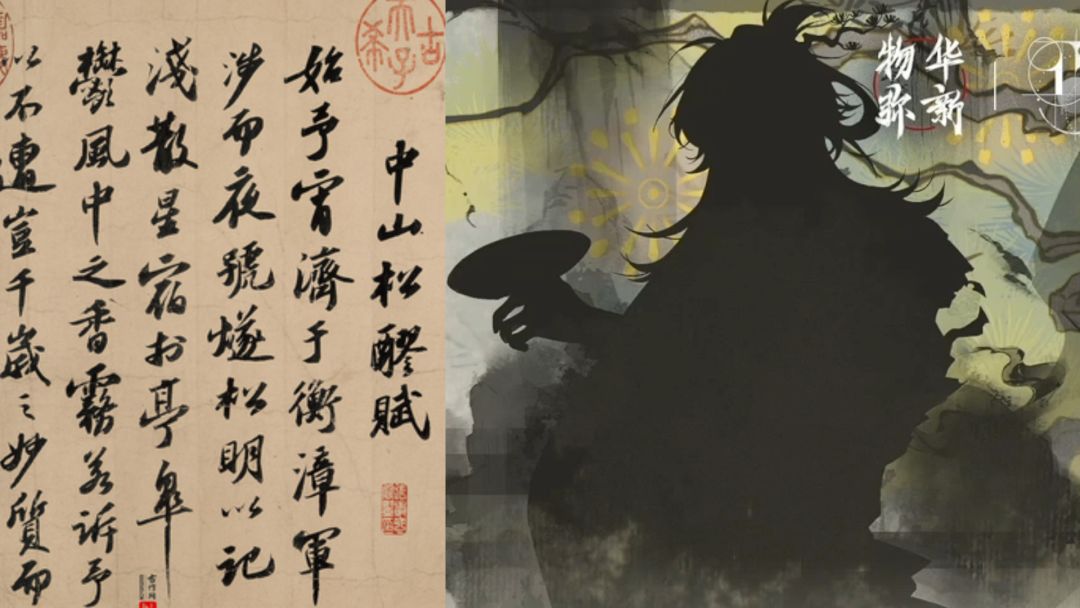 中山松醪賦
始予宵濟于衡漳軍
涉而夜號燧松明以記
淺散星宿於亭皋
鬱風中之香霧若訴予
以不遭豈千歲之妙質而
古希天子
物华
弥新